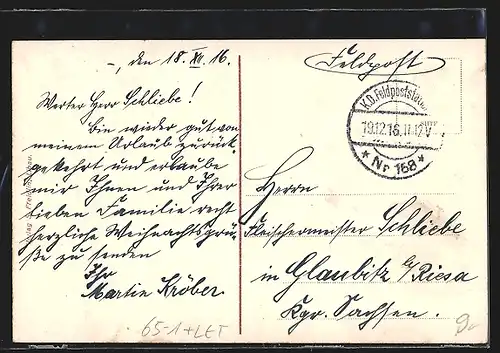 -, den 18. XII. 16.
Werter Herr Schliebe!
Bin wieder gut von
meinem Urlaub zurück-
gekehrt und erlaube
mir Ihnen und Ihrer
lieben Familie recht
herzliche Weihnachtsgrü-
ße zu senden
Ihr
Martin Kröber.
65-1+LET
Feldpost
K.D. Feldpoststation
19.12.16. 11-12V
* Nr 168 *
Herrn
Fleischermeister Schliebe
in Glaubitz b/Riesa
Kgr. Sachsen.